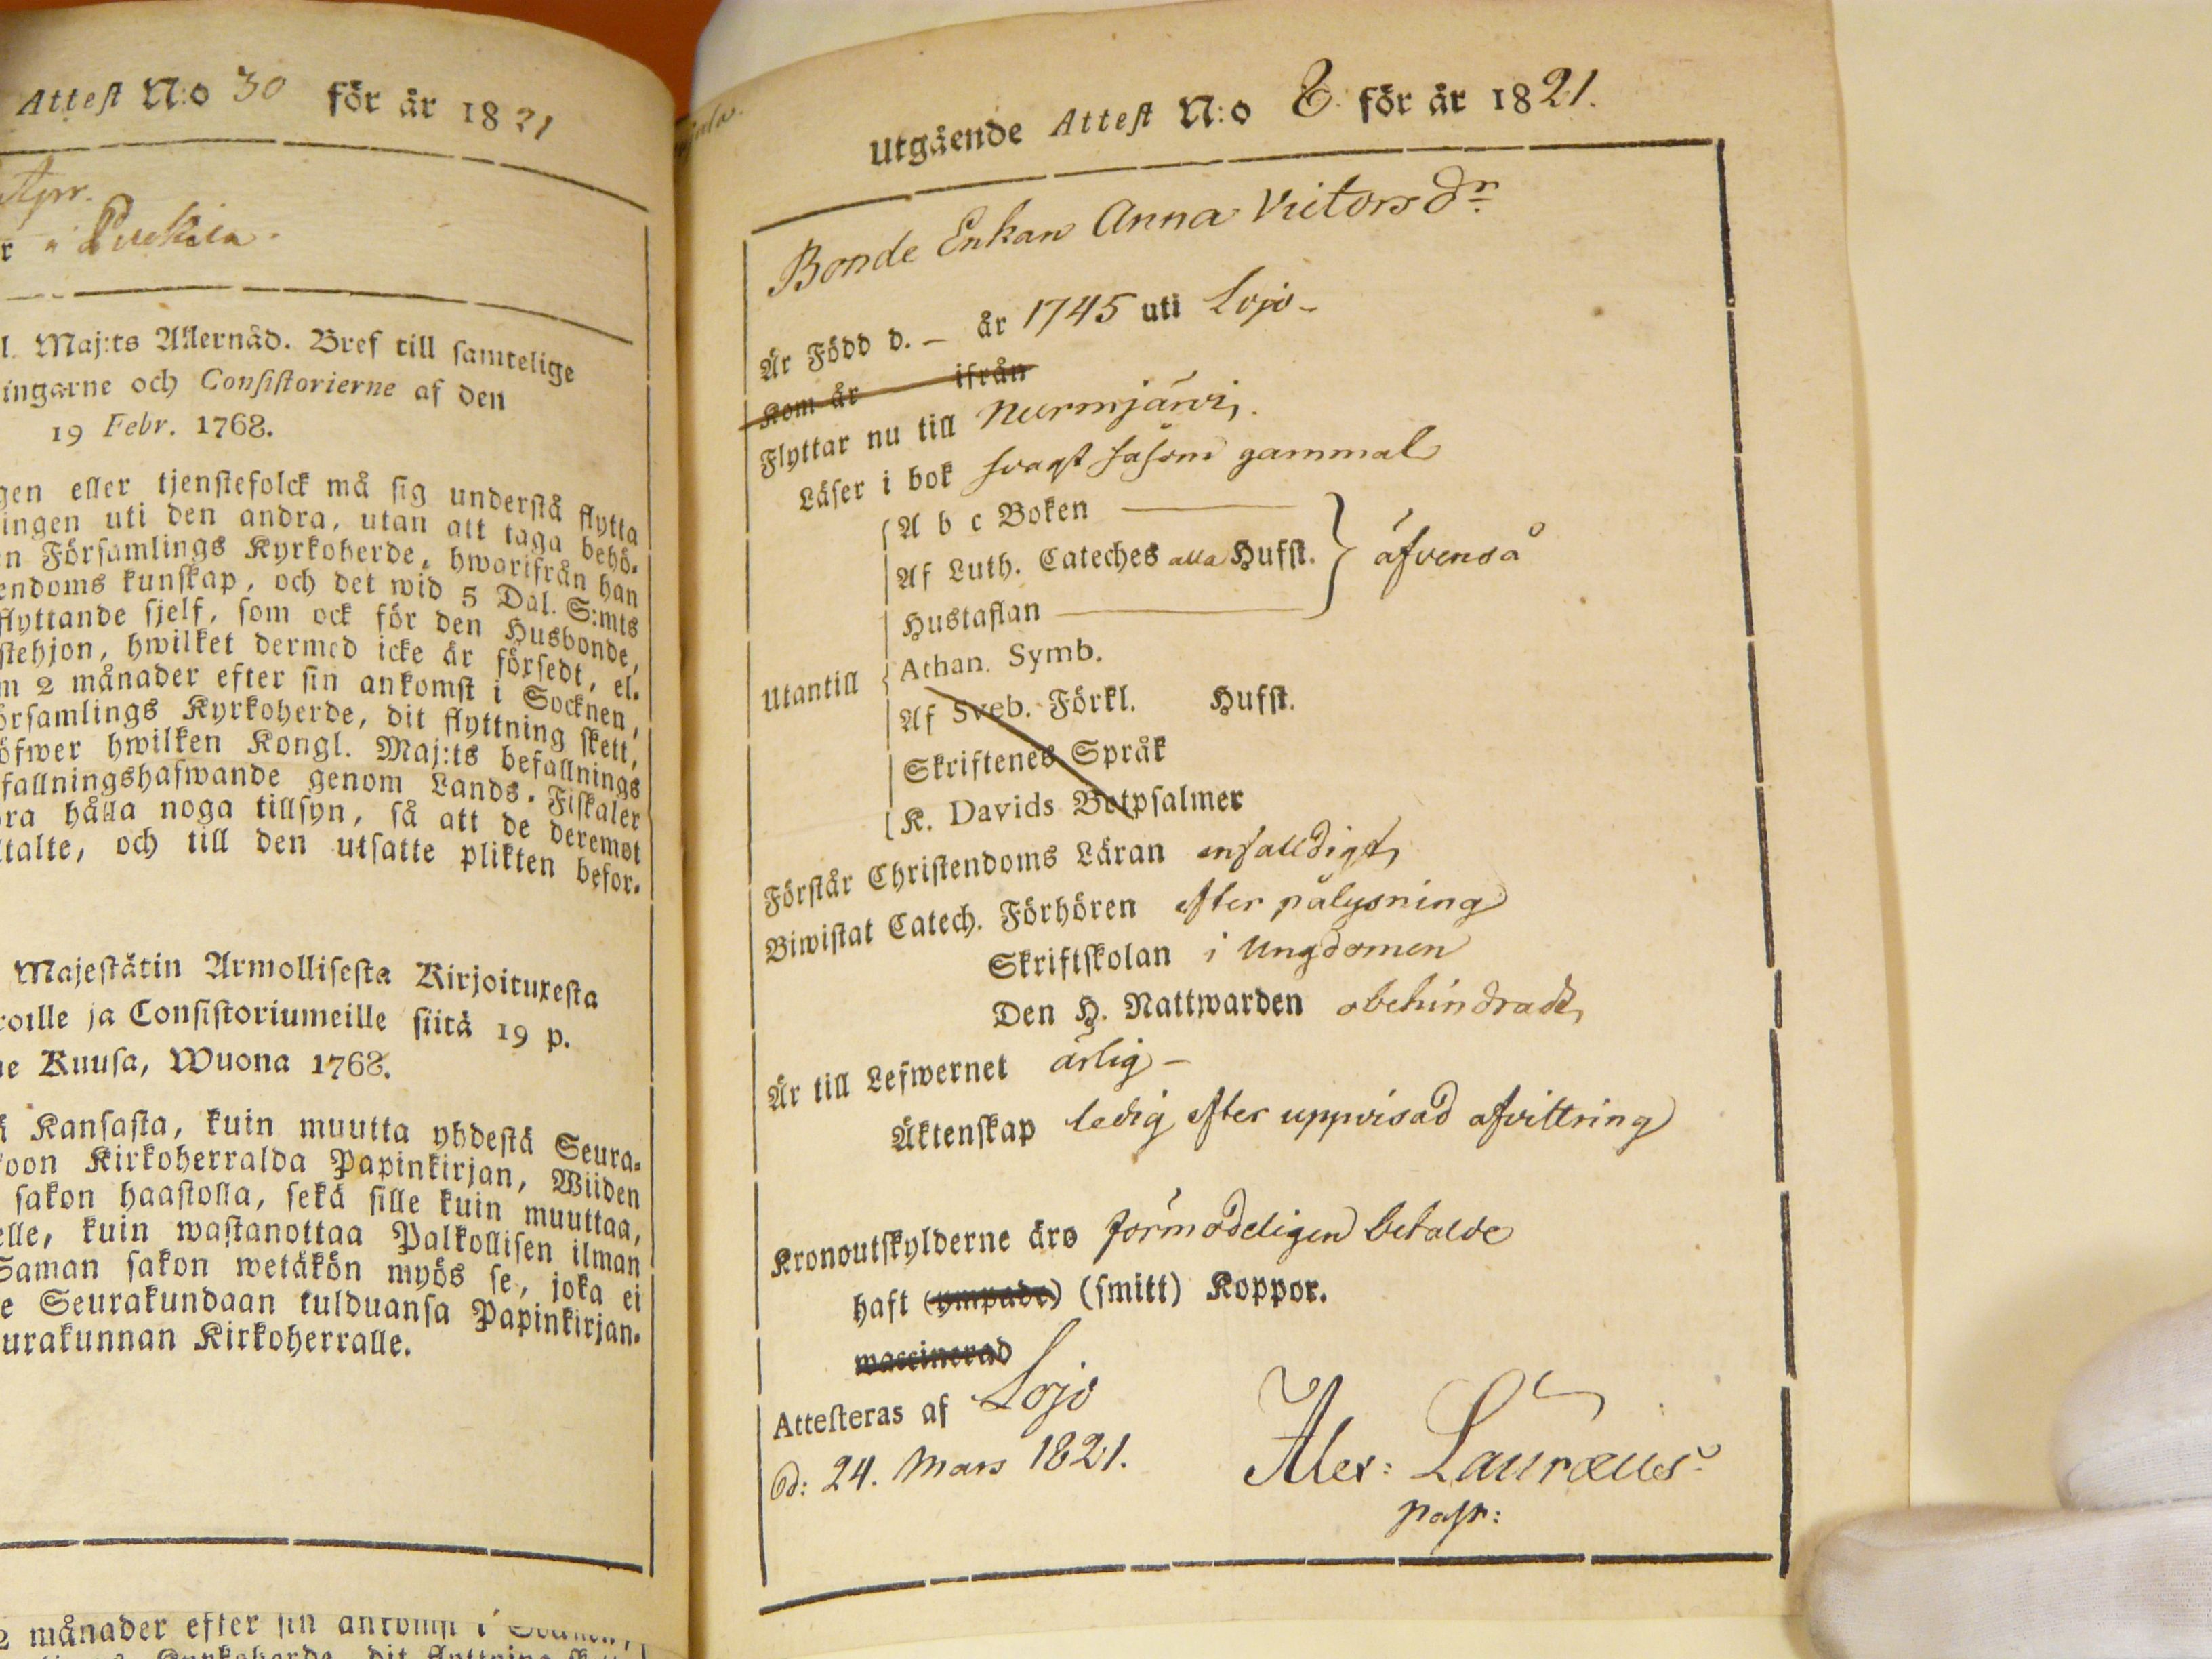 Attest N:o 30 för år 1821
Puckila.
l. Maj:ts Allernåd. Bref till samtelige
ingarne och Consistorierne af den
19 Febr. 1768.
gen eller tjenstefolck må sig understå flytta
ingen uti den andra, utan att taga behö-
n Församlings Kyrkoherde, hwarifrån han
endoms kunskap, och det wid 5 Dal. S:mts
flyttande sjelf, som ock för den Husbonde,
stehjon, hwilket dermed icke är försedt, el-
m 2 månader efter sin ankomst i Socknen,
örsamlings Kyrkoherde, dit flyttning skett,
öfwer hwilken Kongl. Maj:ts befallnings
fallningshafwande genom Lands-Fiskaler
ra hålla noga tillsyn, så att de deremot
ltalte, och till den utsatte plikten befor-
Majestätin Armollisesta Kirjoituxesta
roille ja Consistoriumeille siitä 19 p.
ne Kuusa, Wuona 1768.
ä Kansasta, kuin muutta yhdestä Seura-
koon Kirkoherralda Papinkirjan, Wiiden
sakon haastolla, sekä sille kuin muuttaa,
elle, kuin wastanottaa Palkollisen ilman
Saman sakon wetäkön myös se, joka ei
e Seurakundaan tulduansa Papinkirjan-
urakunnan Kirkoherralle.
2 månader efter sin ankomst i Socknen,
Utgående Attest N:o 8. för år 1821.
Bonde Enkan Anna Victorsdr.
Är Född d. – år 1745 uti Lojo –
Kom år ifrån
Flyttar nu till Nurmijärvi,.
Läser i bok svagt såsom gammal
A b c Boken
Af Luth. Cateches alla Hufst. äfvenså
Hustaflan
Utantill
Athan. Symb.
Af Sveb. Förkl. Hufst.
Skriftenes Språk
K. Davids Botpsalmer
Förstår Christendoms Läran enfalldigt,
Biwistat Catech. Förhören efter pålysning
Skriftskolan i Ungdomen
Den H. Nattwarden obehindradt,
Är till Lefwernet ärlig –
Äktenskap ledig efter uppvisad afvittring
Kronoutskylderne äro förmodeligen betalde
haft (ympade) (smitt) Koppor.
waccinerad
Attesteras af Lojo
d: 24. Mars 1821. Alex: Lauræus.
past: